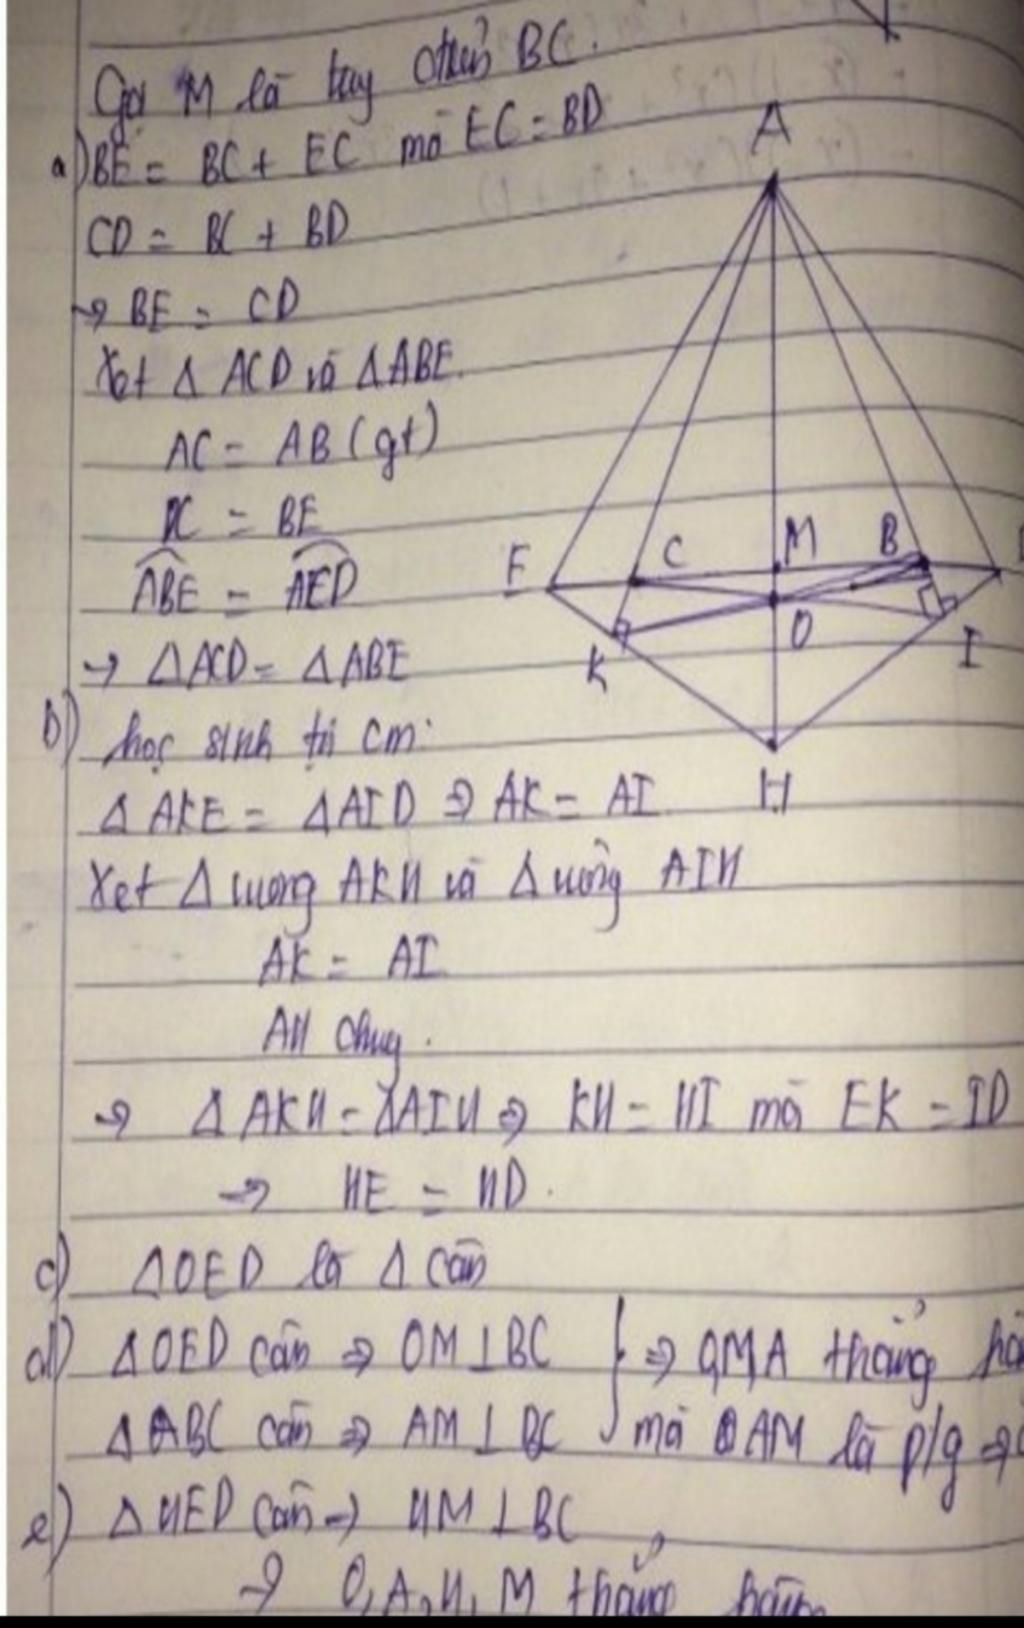 Gọi M là trug điểm BC.
a) BE = BC + EC mà EC = BD
CD = BC + BD
→ BE = CD
Xét Δ ACD và Δ ABE.
AC = AB (gt)
DC = BE
ABE = AED
→ ΔACD = ΔABE
b) học sinh tự cm:
Δ AKE = ΔAID ⇒ AK = AI
Xét Δ vuông AKH và Δ vuông AIH
AK = AI
AH chug.
→ Δ AKH = ΔAIH ⇒ KH = HI mà EK = ID
→ HE = HD.
c) ΔOED là Δ cân
d) ΔOED cân ⇒ OM ⊥ BC } ⇒ O,M,A thẳng
ΔABC cân ⇒ AM ⊥ BC mà AM là p/g ⇒
e) ΔHED cân → HM ⊥ BC
→ O, A, H, M thẳng hàng
A
E C M B
K O I
H